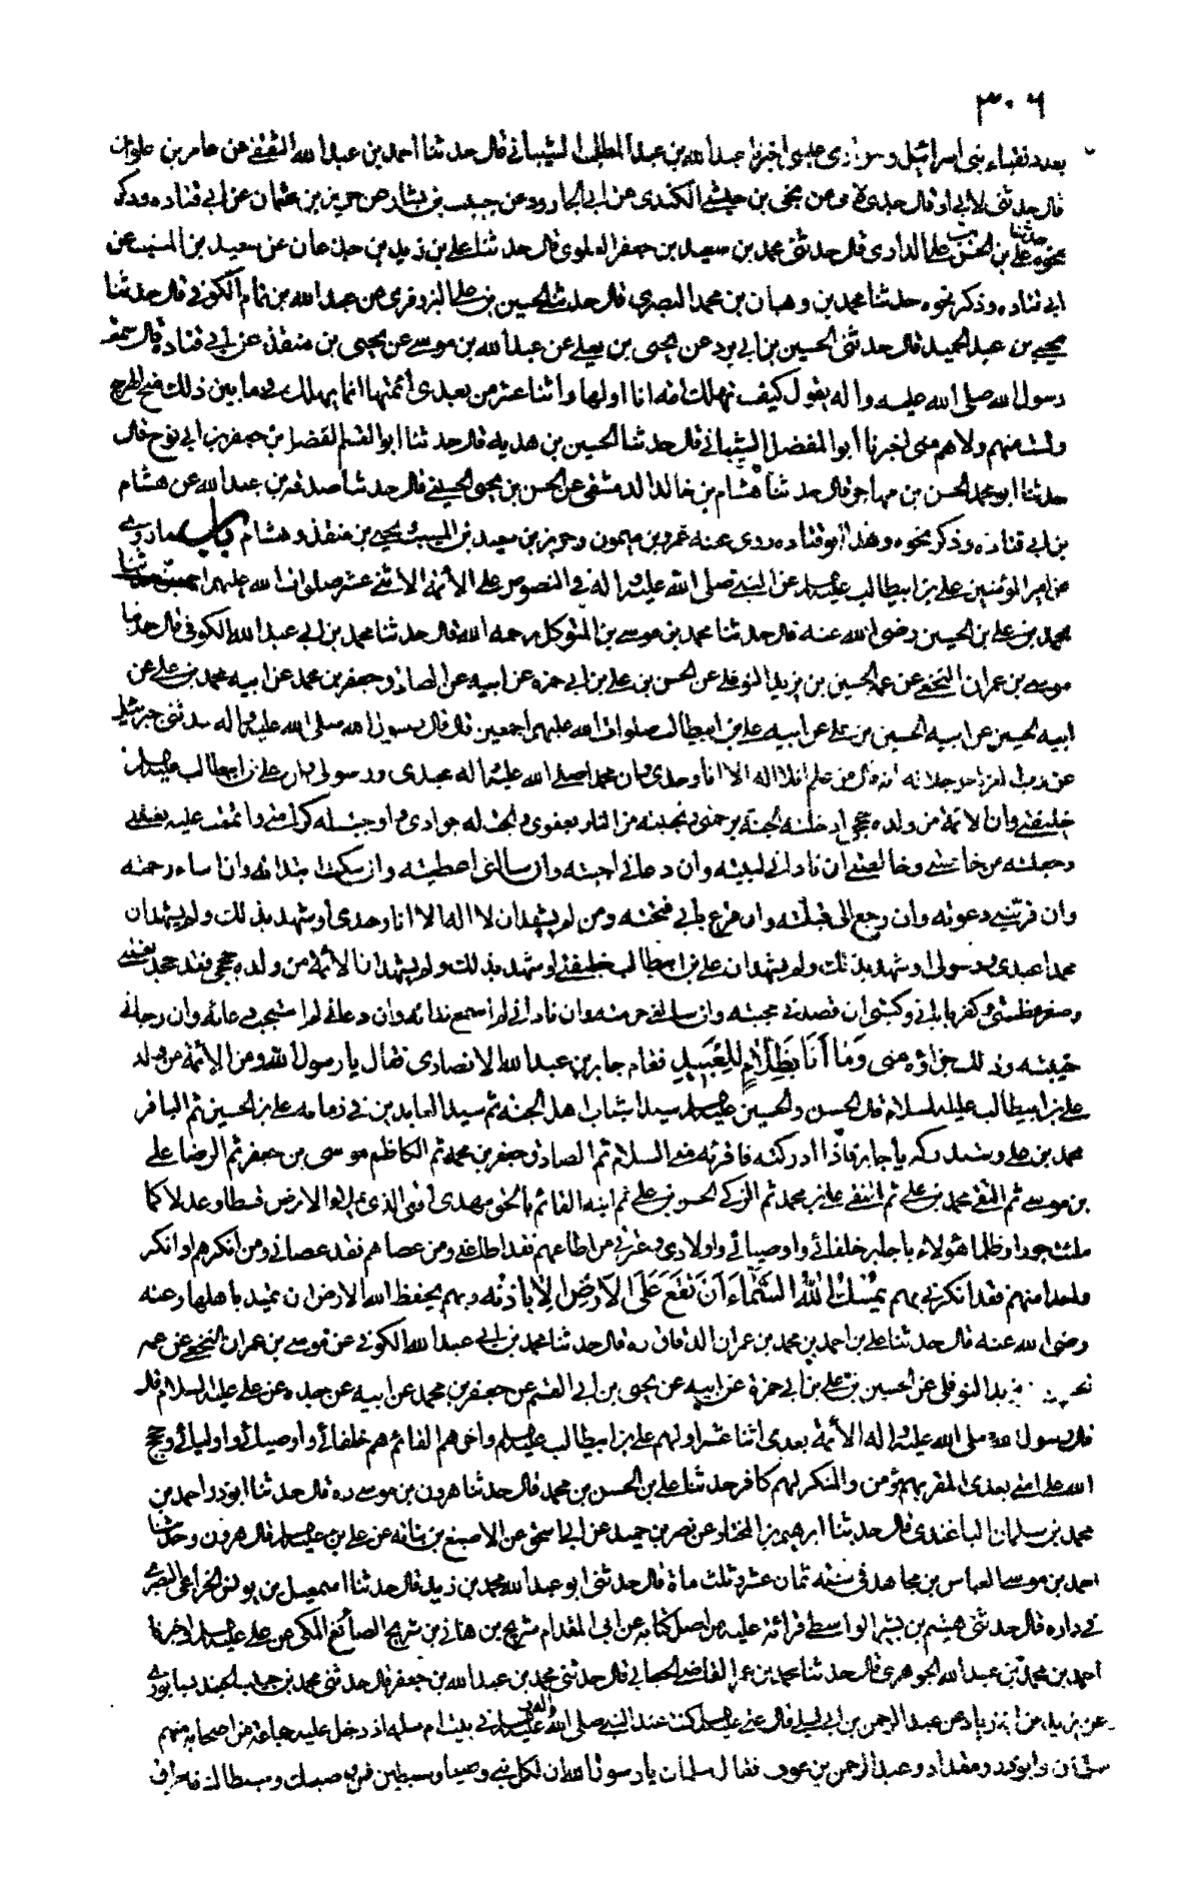 ٣٠٦
بعدد نقباء بنى اسرائيل وحوارى عيسى اخبرنا عبد الله بن عبد المطلب الشيبانى قال حدثنا احمد بن عبد الله الثقفى عن عامر بن علوان
قال حدثنى قال جدى عن يحيى بن الكندى عن ابى الجارود عن حبيب بن بشار عن حريز بن عثمان عن ابى قتاده وذكر
نحوه حدثنا على بن الحسن على الرازى قال حدثنى محمد بن سعيد بن جعفر قال حدثنا على بن زيد بن جدعان عن سعيد بن المسيب عن
ابى قتاده وذكر نحوه حدثنا محمد بن وهبان بن محمد البصرى قال حدثنا الحسين بن على البزوفرى عن عبد الله بن تمام الكوفى قال حدثنا
يحيى بن عبد الحميد قال حدثنى الحسين بن ابى برد عن يحيى بن يعلى عن عبد الله بن موسى عن يحيى بن منقذ عن ابى قتاده قال سمعت
رسول الله صلى الله عليه واله يقول كيف تهلك امة انا اولها واثنا عشر من بعدى ائمتها انما يهلك فيما بين ذلك الهرج
ولست منهم ولا هم منى اخبرنا ابو المفضل الشيبانى قال حدثنا الحسين بن هديه قال حدثنا ابو القسم الفضل بن جعفر بن ابى نوح قال
حدثنا ابو محمد الحسن بن مهاجر قال حدثنا هشام بن خالد الدمشقى عن الحسن بن يحيى الحسينى قال حدثنا صدقه بن عبد الله عن هشام
بن ابى قتاده وذكر نحوه وهذا ابو قتاده روى عنه عمرو بن ميمون وحريز بن سعيد بن المسيب يحيى بن منقذ وهشام باب ما روى
عن امير المؤمنين على بن ابيطالب ع عن النبى صلى الله عليه واله فى النصوص على الأئمة الاثنى عشر صلوات الله عليهم اجمعين حدثنا
محمد بن على بن الحسين رضى الله عنه قال حدثنا محمد بن موسى بن المتوكل رحمه الله قال حدثنا محمد بن ابى عبد الله الكوفى قال حدثنا
موسى بن عمران النخعى عن عمه الحسين بن يزيد النوفلى عن الحسن بن على بن ابى حمزه عن ابيه عن الصادق جعفر بن محمد عن ابيه محمد بن على عن
ابيه الحسين عن ابيه الحسين بن على عن ابيه على بن ابيطالب صلوات الله عليهم اجمعين قال قال رسول الله صلى الله عليه واله حدثنى جبرئيل
عن رب العزة جل جلاله انه قال من علم ان لا اله الا انا وحدى وان محمدا صلى الله عليه واله عبدى ورسولى وان على بن ابيطالب
خليفتى وان الائمة من ولده حججى ادخلته الجنة برحمتى ونجيته من النار بعفوى وابحت له جوارى واوجبت له كرامتى واتممت عليه نعمتى
وجعلته من خاصتى وخالصتى ان نادانى لبيته وان دعانى اجبته وان سالنى اعطيته وان سكت ابتداته وان اساء رحمته
وان فر منى دعوته وان رجع الى قبلته وان قرع بابى فتحته ومن لم يشهد ان لا اله الا انا وحدى او شهد بذلك ولم يشهد ان
محمدا عبدى ورسولى او شهد بذلك ولم يشهد ان على بن ابيطالب خليفتى او شهد بذلك ولم يشهد ان الأئمة من ولده حججى فقد جحد نعمتى
وصغر عظمتى وكفر باياتى وكتبى ان قصدنى حجبته وان سالنى حرمته وان نادانى لم اسمع نداءه وان دعانى لم استجب دعائه وان رجانى
خيبته وذلك جزاؤه منى وَمَا اَنَا بِظَلَّامٍ لِلْعَبِيدِ فقام جابر بن عبد الله الانصارى فقال يا رسول الله ومن الائمة من ولد
على بن ابيطالب عليه السلام قال الحسن والحسين سيدا شباب اهل الجنة ثم سيد العابدين فى زمانه على بن الحسين ثم الباقر
محمد بن على وستدركه يا جابر فاذا ادركته فاقرئه منى السلام ثم الصادق جعفر بن محمد ثم الكاظم موسى بن جعفر ثم الرضا على
بن موسى ثم التقى محمد بن على ثم النقى على بن محمد ثم الزكى الحسن بن على ثم ابنه القائم بالحق مهدى امتى الذى يملؤ الارض قسطا وعدلا كما
ملئت جورا وظلما هؤلاء يا جابر خلفائى واوصيائى واولادى وعترتى من اطاعهم فقد اطاعنى ومن عصاهم فقد عصانى ومن انكرهم او انكر
واحدا منهم فقد انكرنى بهم يُمْسِكُ اللهُ السَّمَاءَ اَنْ تَقَعَ عَلَى الاَرْضِ اِلَّا بِاِذْنِه وبهم يحفظ الله الارض ان تميد باهلها وعنه
رضى الله عنه قال حدثنا على بن احمد بن محمد بن عمران الدقاق ره قال حدثنا محمد بن ابى عبد الله الكوفى عن موسى بن عمران النخعى عن عمه
يزيد النوفلى عن الحسين بن على بن ابى حمزة عن ابيه عن يحيى بن ابى القسم عن جعفر بن محمد عن ابيه عن جده عن على عليه السلام قال
قال رسول الله صلى الله عليه واله الأئمة بعدى اثنا عشر اولهم على بن ابيطالب واخرهم القائم هم خلفائى واوصيائى واوليائى وحجج
الله على امتى بعدى المقر بهم مؤمن والمنكر لهم كافر حدثنا على بن الحسن بن محمد قال حدثنا هرون بن موسى ره قال حدثنا ابو ذر احمد بن
محمد بن سلمان الباغندى قال حدثنا ابرهيم بن المختار عن نصر بن حميد عن ابى اسحق عن الاصبغ بن نباته عن على بن قال هرون وحدثنا
احمد بن موسى العباس بن مجاهد فى سنة ثمان عشر وثلث ماة قال حدثنى ابو عبد الله محمد بن زيد قال حدثنا اسمعيل بن يونس الخزاعى البصرى
فى داره قال حدثنى هيشم بن بشر الواسطى قرائة عليه من اصل كتابه عن ابى المقدام شريح بن هانى بن شريح الصائغ المكى عن على اخبرنا
احمد بن محمد بن عبد الله الجوهرى قال حدثنا محمد بن عمر القاضى الجعابى قال حدثنى محمد بن عبد الله بن جعفر قال حدثنى محمد بن حبيب الجند سابورى
عن يزيد بن ابى زياد عن عبد الرحمن بن ابى ليلى قال قال على كنت عند النبى صلى الله عليه واله فى بيت ام سلمه اذ دخل عليه جماعة من اصحابه منهم
سلمان وابو ذر ومقداد وعبد الرحمن بن عوف فقال سلمان يا رسول الله ان لكل نبى وصيا وسبطين فمن وصيك وسبطاك فاطرق